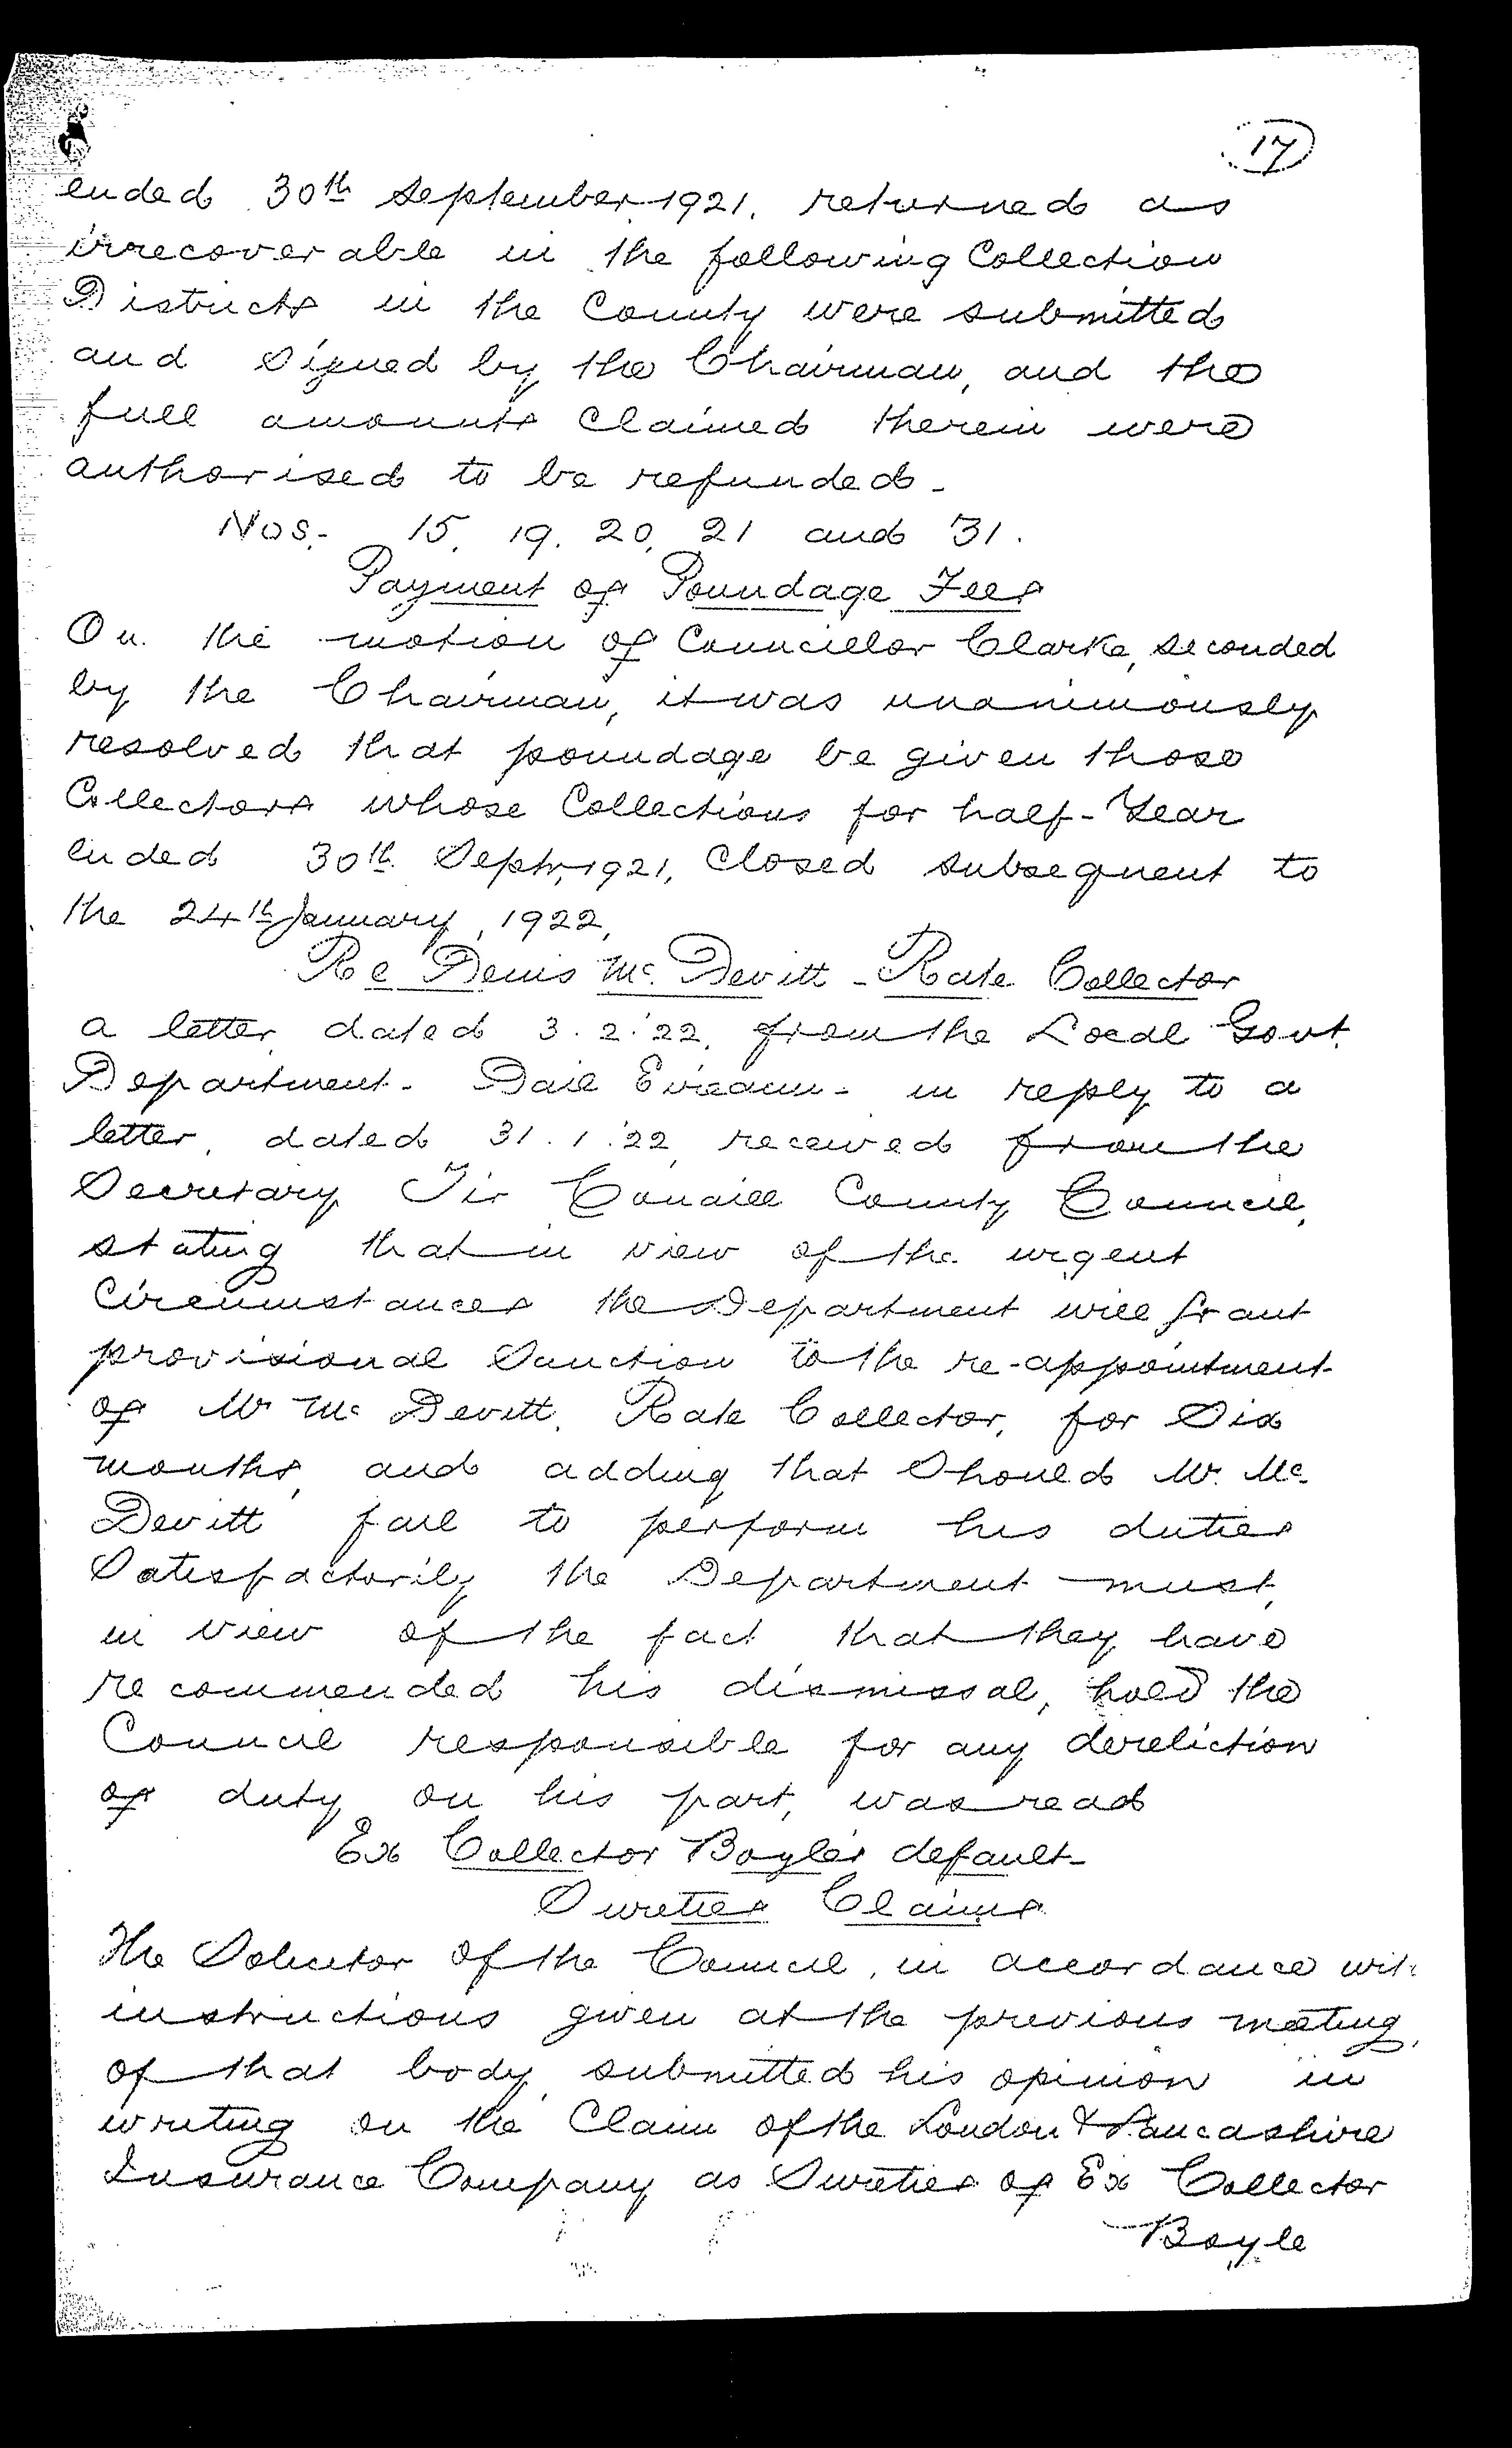 17
ended 30th September 1921. returned as
irrecoverable in the following Collection
Districts in the County were submitted
and Signed by the Chairman, and the
full amounts Claimed therein were
authorised to be refunded.
Nos.- 15, 19. 20, 21 and 31.
Payment of Poundage Fees
On the motion of Councillor Clarke, seconded
by the Chairman, it was unanimously
resolved that poundage be given those
Collectors whose Collections for half-Year
ended 30th Septr, 1921, Closed subsequent to
the 24th January, 1922,
Re Denis Mc. Devitt - Rate Collector
a letter dated 3. 2. '22, from the Local Govt.
Department - Dail Eireann - in reply to a
letter, dated 31. 1. '22, received from the
Secretary Tir Conaill County Council,
stating that in view of the urgent
Circumstances the Department will grant
provisional Sanction to the re-appointment
of Mr. Mc Devitt, Rate Collector, for Six
months, and adding that Should Mr. Mc
Devitt fail to perform his duties
Satisfactorily the Department must,
in view of the fact that they have
recommended his dismissal, hold the
Council responsible for any dereliction
of duty on his part, was read
Ex Collector Boyle's default -
Sureties Claims
The Solicitor of the Council, in accordance with
instructions given at the previous meeting,
of that body, submitted his opinion in
writing on the Claim of the London & Lancashire
Insurance Company as Sureties of Ex Collector
Boyle